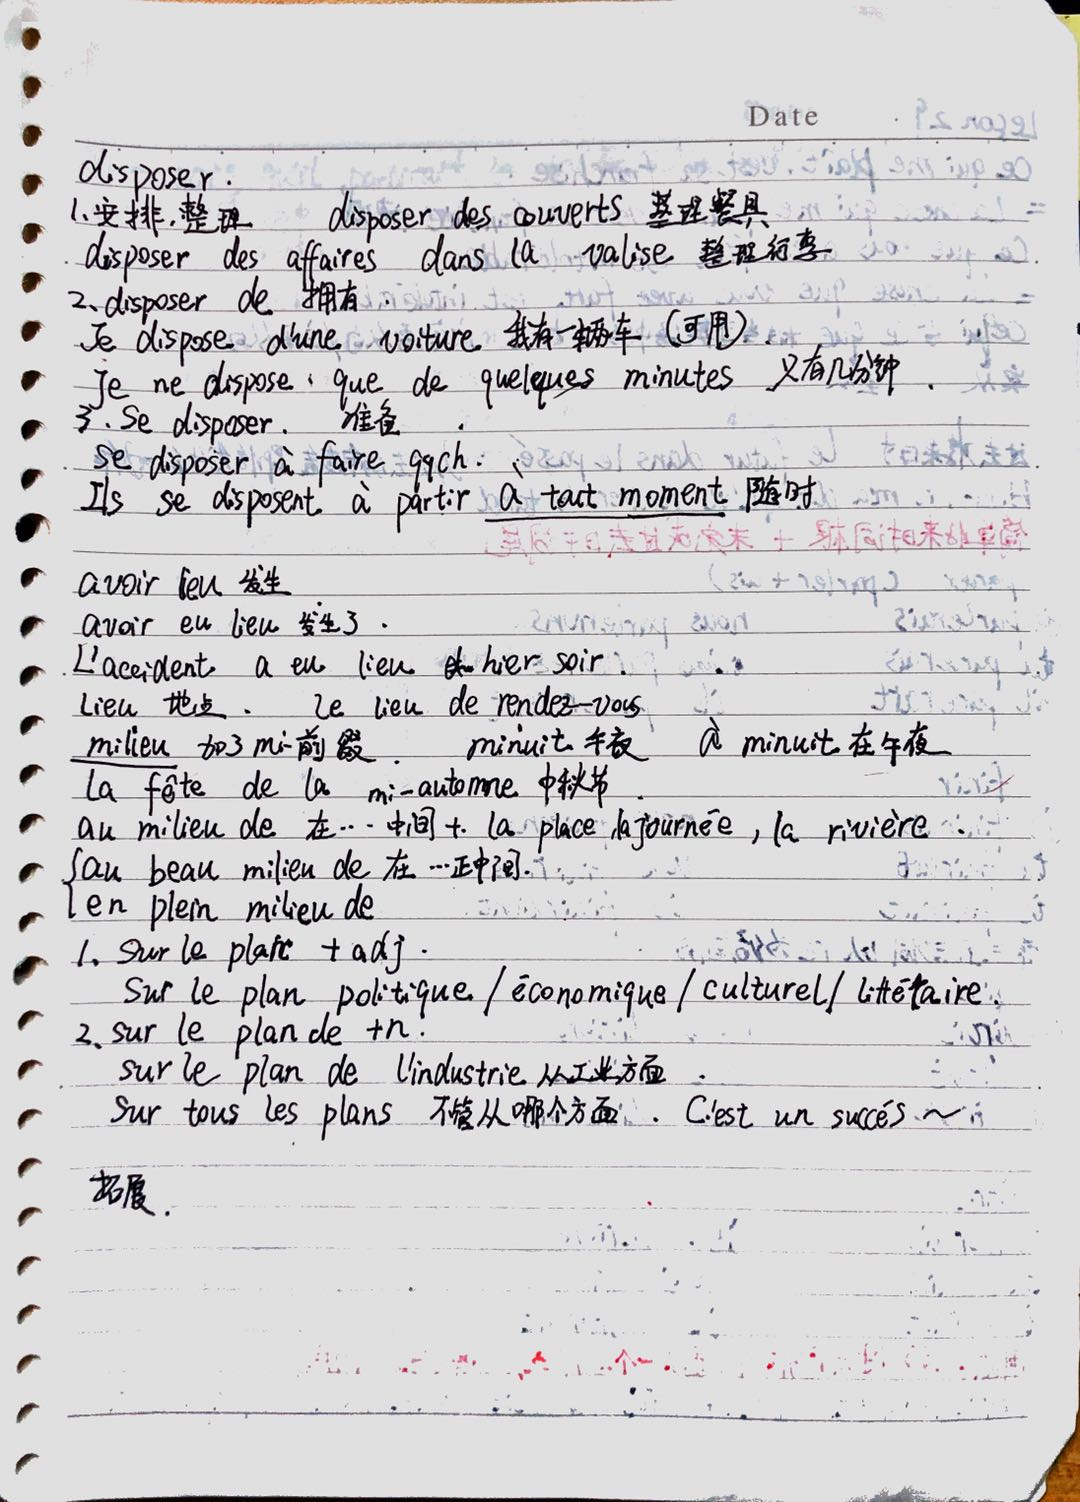 Date
disposer.
1.安排.整理 disposer des couverts 整理餐具
disposer des affaires dans la valise 整理行李
2.disposer de 拥有.
Je dispose d'une voiture 我有一辆车 (可用).
Je ne dispose que de quelques minutes 只有几分钟.
3.Se disposer. 准备.
se disposer à faire qqch.
Ils se disposent à partir à tout moment 随时
avoir lieu 发生
avoir eu lieu 发生了.
L'accident a eu lieu hier soir.
Lieu 地点. le lieu de rendez-vous
milieu 加了mi-前缀. minuit 午夜 à minuit 在午夜
La fête de la mi-automne 中秋节.
au milieu de 在…中间 + la place, la journée, la rivière.
au beau milieu de 在…正中间.
en plein milieu de
1. Sur le plan + adj.
Sur le plan politique / économique / culturel / littétaire.
2.sur le plan de +n.
sur le plan de l'industrie 从工业方面.
Sur tous les plans 不管从哪个方面. C'est un succés ~
拓展.